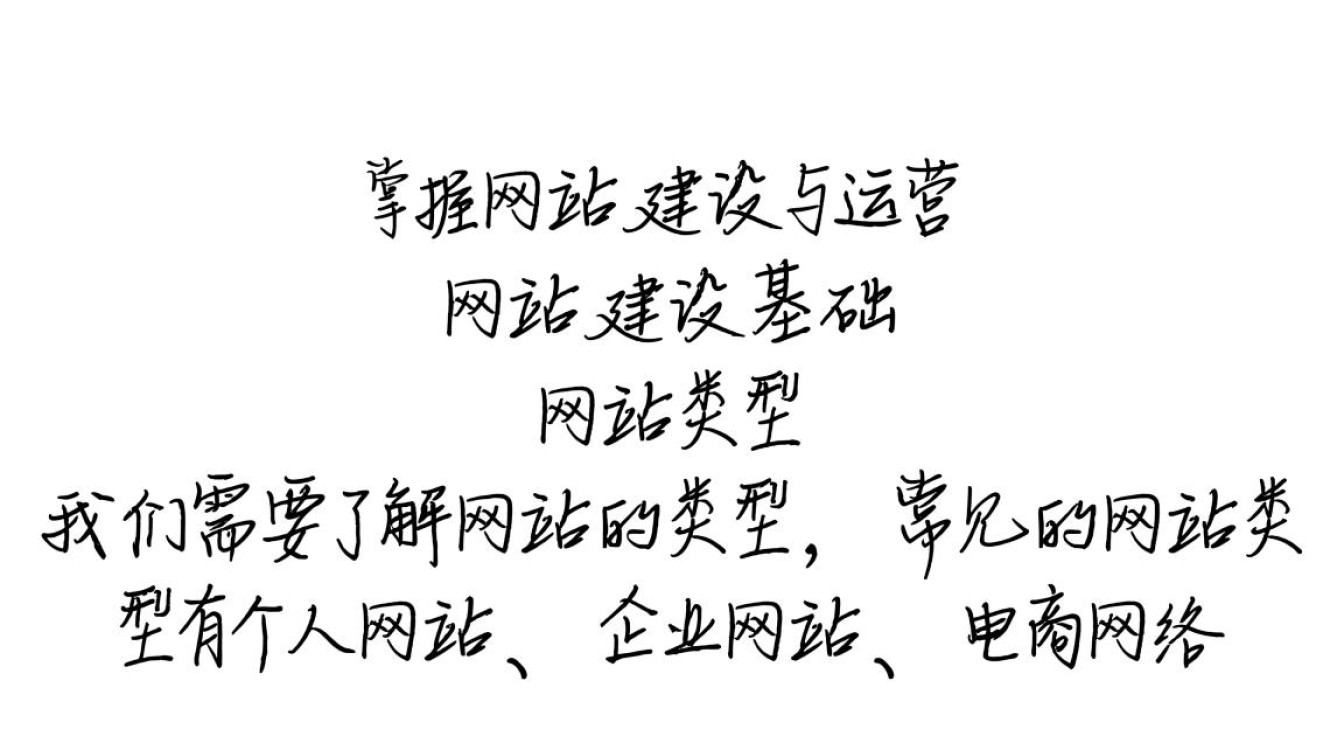 掌握网站建设与运营
网站建设基础
网站类型
我们需要了解网站的类型，常见的网站类
型有个人网站、企业网站、电商网络